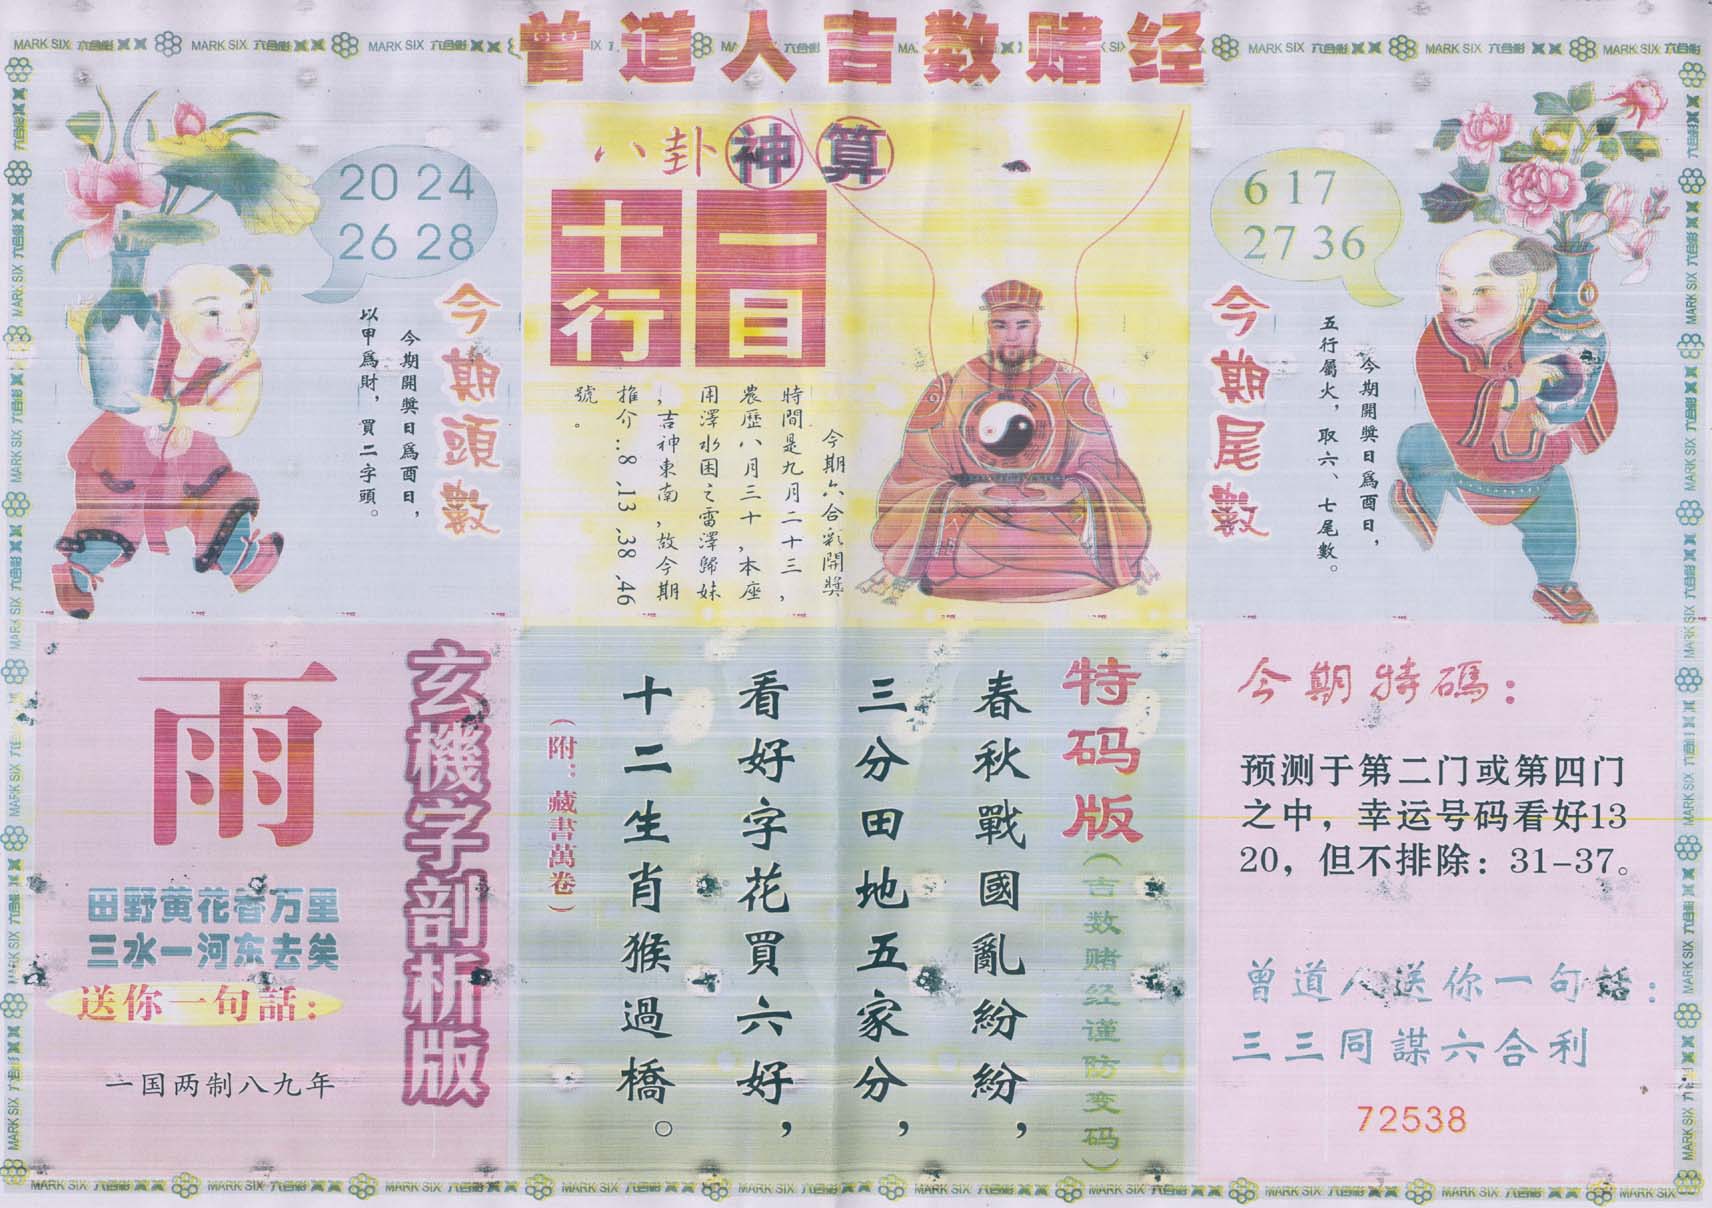 曾道人吉数赌经
MARK SIX 六合彩
20 24
26 28
今期頭數
今期開獎日爲酉日，
以甲爲財，買二字頭。
八卦神算
一目
十行
今期六合彩開獎
時間是九月二十三，
農歷八月三十，本座
用澤水困之雷澤歸妹
，吉神東南，故今期
推介：.8 .13 .38 .46
號。
6 17
27 36
今期尾數
今期開獎日爲酉日，
五行屬火，取六、七尾數。
玄機字剖析版
雨
田野黄花香万里
三水一河东去矣
送你一句話：
一国两制八九年
特码版
（吉数赌经谨防变码）
春秋戰國亂紛紛，
三分田地五家分，
看好字花買六好，
十二生肖猴過橋。
（附：藏書萬卷）
今期特碼：
预测于第二门或第四门
之中，幸运号码看好13
20，但不排除：31-37。
曾道人送你一句話：
三三同謀六合利
72538